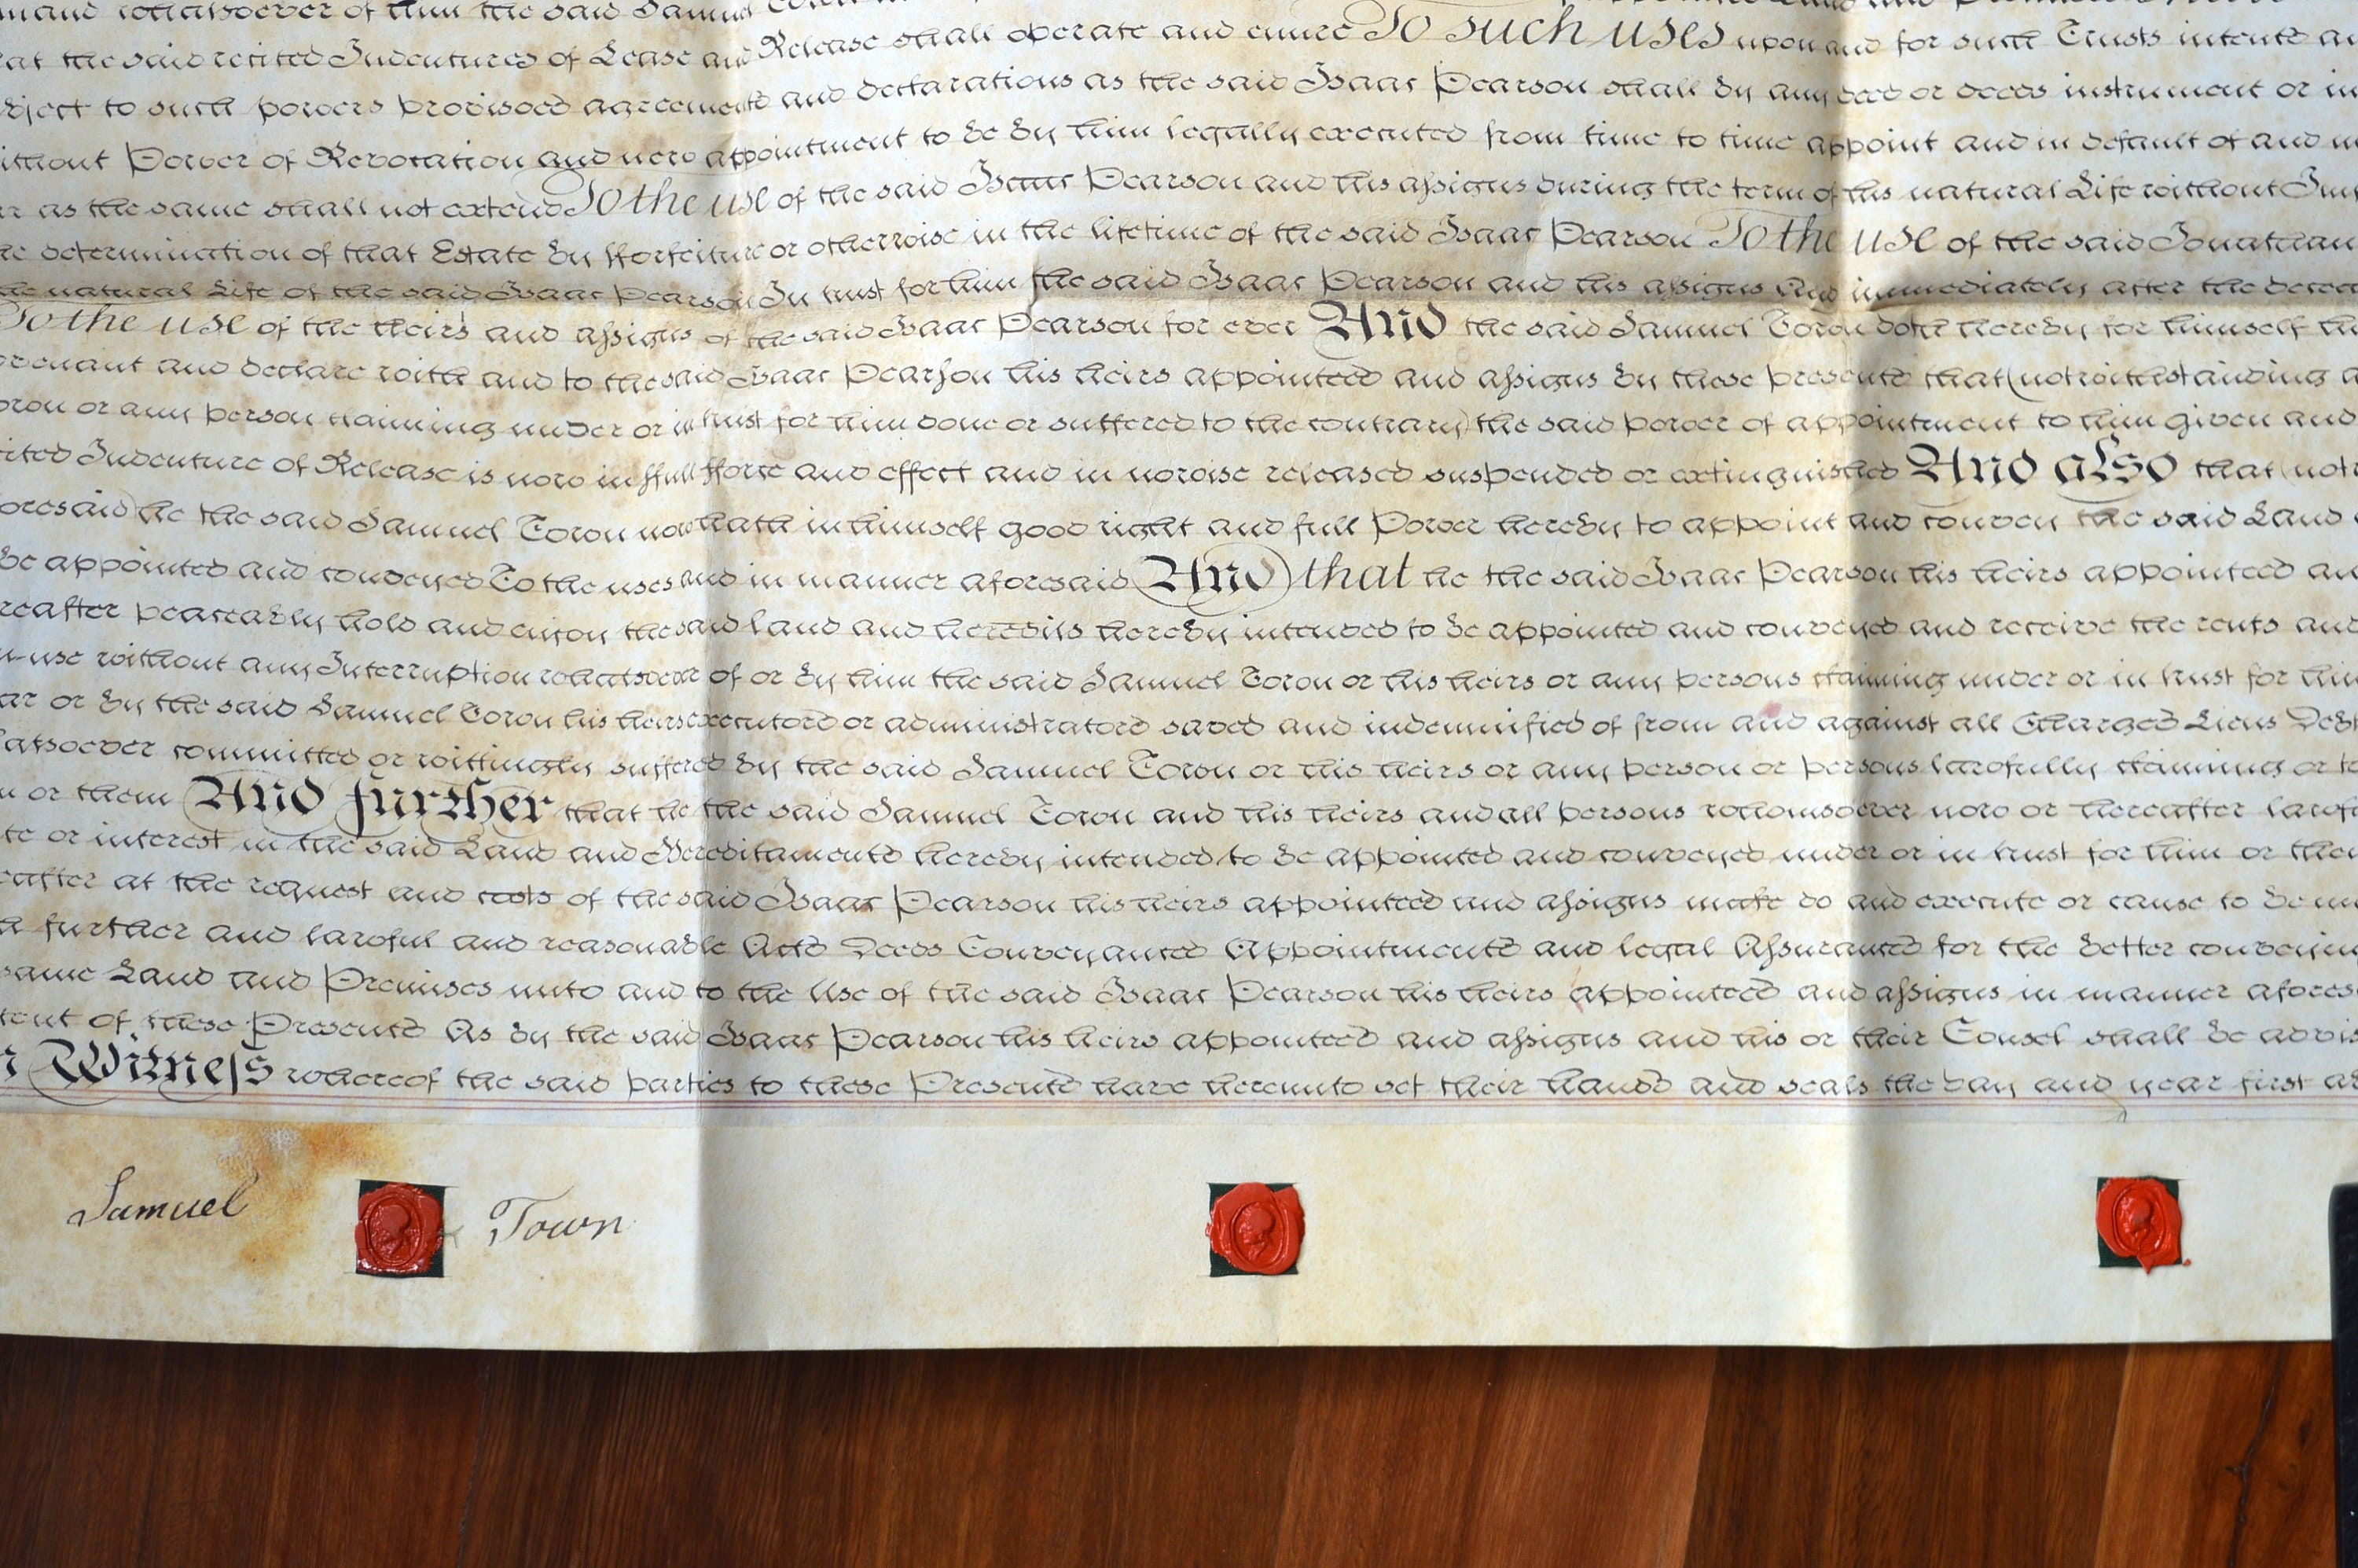 whatsoever of him the said Samuel
at the said recited Indentures of Lease and Release shall operate and enure To such uses upon and for such Trusts intents
to such powers provisoes agreements and declarations as the said Isaac Pearson shall by any deed or deeds instrument or in
ithout Power of Revocation and new appointment to be by him legally executed from time to time appoint and in default of and in
as the same shall not extend To the use of the said Isaac Pearson and his assigns during the term of his natural Life without Im
determination of that Estate by fforfeiture or otherwise in the lifetime of the said Isaac Pearson To the use of the said Jonathan
the natural Life of the said Isaac Pearson In trust for him the said Isaac Pearson and his assigns And immediately after the
To the use of the heirs and assigns of the said Isaac Pearson for ever And the said Samuel Town doth hereby for himself
ovenant and declare with and to the said Isaac Pearson his heirs appointees and assigns by these presents that (notwithstanding
own or any person claiming under or in trust for him done or suffered to the contrary) the said power of appointment to him given and
cited Indenture of Release is now in ffull fforce and effect and in nowise released suspended or extinguished And also that (not
oresaid) he the said Samuel Town now hath in himself good right and full Power hereby to appoint and convey the said Land
be appointed and conveyed To the uses and in manner aforesaid And that he the said Isaac Pearson his heirs appointees an
reafter peaceably hold and enjoy the said land and heredits hereby intended to be appointed and conveyed and receive the rents and
use without any Interruption whatsoever of or by him the said Samuel Town or his heirs or any persons claiming under or in trust for him
or by the said Samuel Town his heirs executors or administrators saved and indemnified of from and against all Charges Liens Deb
atsoever committed or wittingly suffered by the said Samuel Town or his heirs or any person or persons lawfully claiming or
or them And further that he the said Samuel Town and his heirs and all persons whomsoever now or hereafter lawf
te or interest in the said Land and Hereditaments hereby intended to be appointed and conveyed under or in trust for him or them
eafter at the request and costs of the said Isaac Pearson his heirs appointees and assigns make do and execute or cause to be
further and lawful and reasonable Acts Deeds Conveyances Appointments and legal Assurances for the better conveyin
same Land and Premises unto and to the Use of the said Isaac Pearson his heirs appointees and assigns in manner afores
tent of these Presents As by the said Isaac Pearson his heirs appointees and assigns and his or their Consel shall be advis
n Witness whereof the said parties to these Presents have hereunto set their hands and seals the day and year first ab
Samuel Town